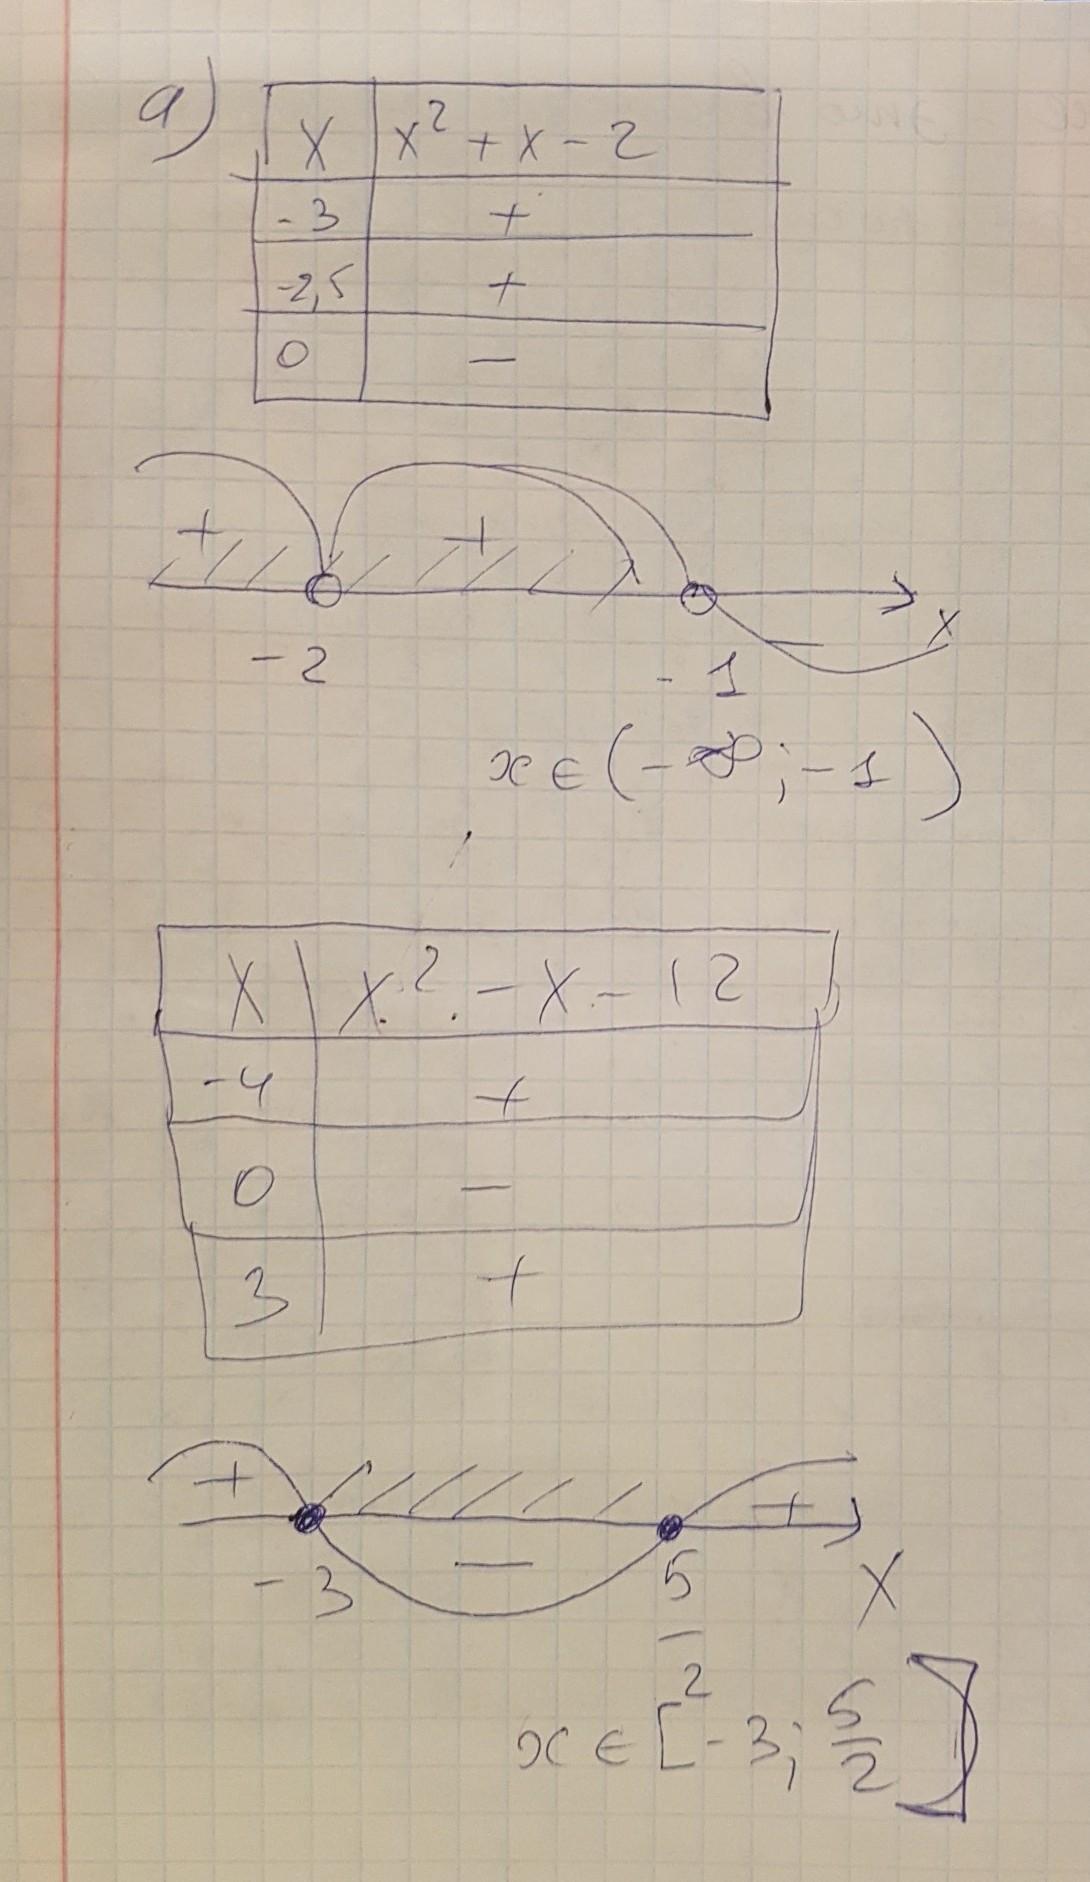 a)
x | x² + x - 2
-3 | +
-2,5 | +
0 | —
+ + —
-2 -1 x
x ∈ (-∞; -1)
x | x² - x - 12
-4 | +
0 | —
3 | +
+ — +
-3 5/2 x
x ∈ [-3; 5/2]